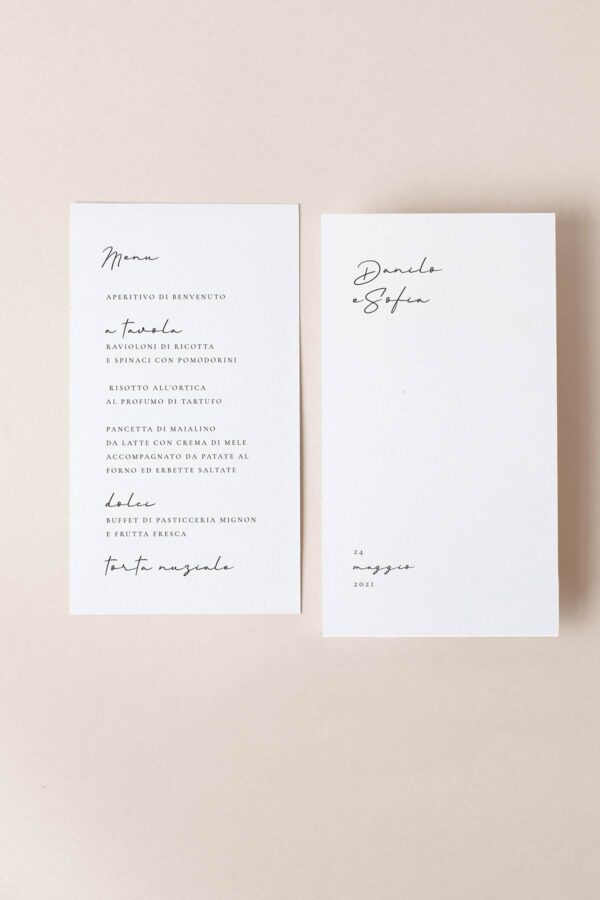 Menu
APERITIVO DI BENVENUTO
a tavola
RAVIOLONI DI RICOTTA
E SPINACI CON POMODORINI
RISOTTO ALL'ORTICA
AL PROFUMO DI TARTUFO
PANCETTA DI MAIALINO
DA LATTE CON CREMA DI MELE
ACCOMPAGNATO DA PATATE AL
FORNO ED ERBETTE SALTATE
dolci
BUFFET DI PASTICCERIA MIGNON
E FRUTTA FRESCA
torta nuziale
Danilo
e Sofia
24
maggio
2021